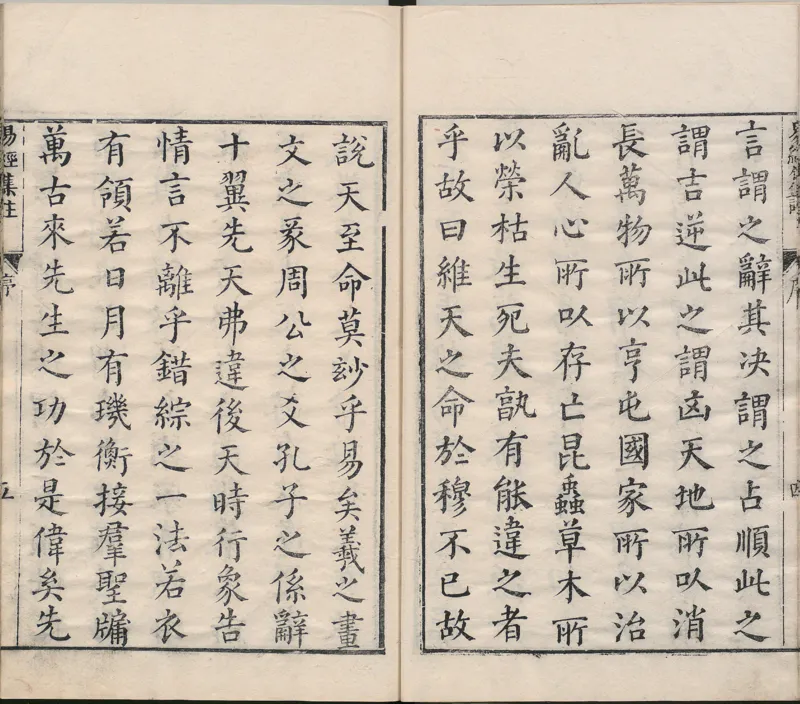 言謂之辭其决謂之占順此之
謂吉逆此之謂凶天地所以消
長萬物所以亨屯國家所以治
亂人心所以存亡昆蟲草木所
以榮枯生死夫孰有能違之者
乎故曰維天之命於穆不已故
說天至命莫玅乎易矣羲之畫
文之彖周公之爻孔子之係辭
十翼先天弗違後天時行象告
情言不離乎錯綜之一法若衣
有領若日月有璣衡接羣聖牖
萬古來先生之功於是偉矣先
易經集註
序
五